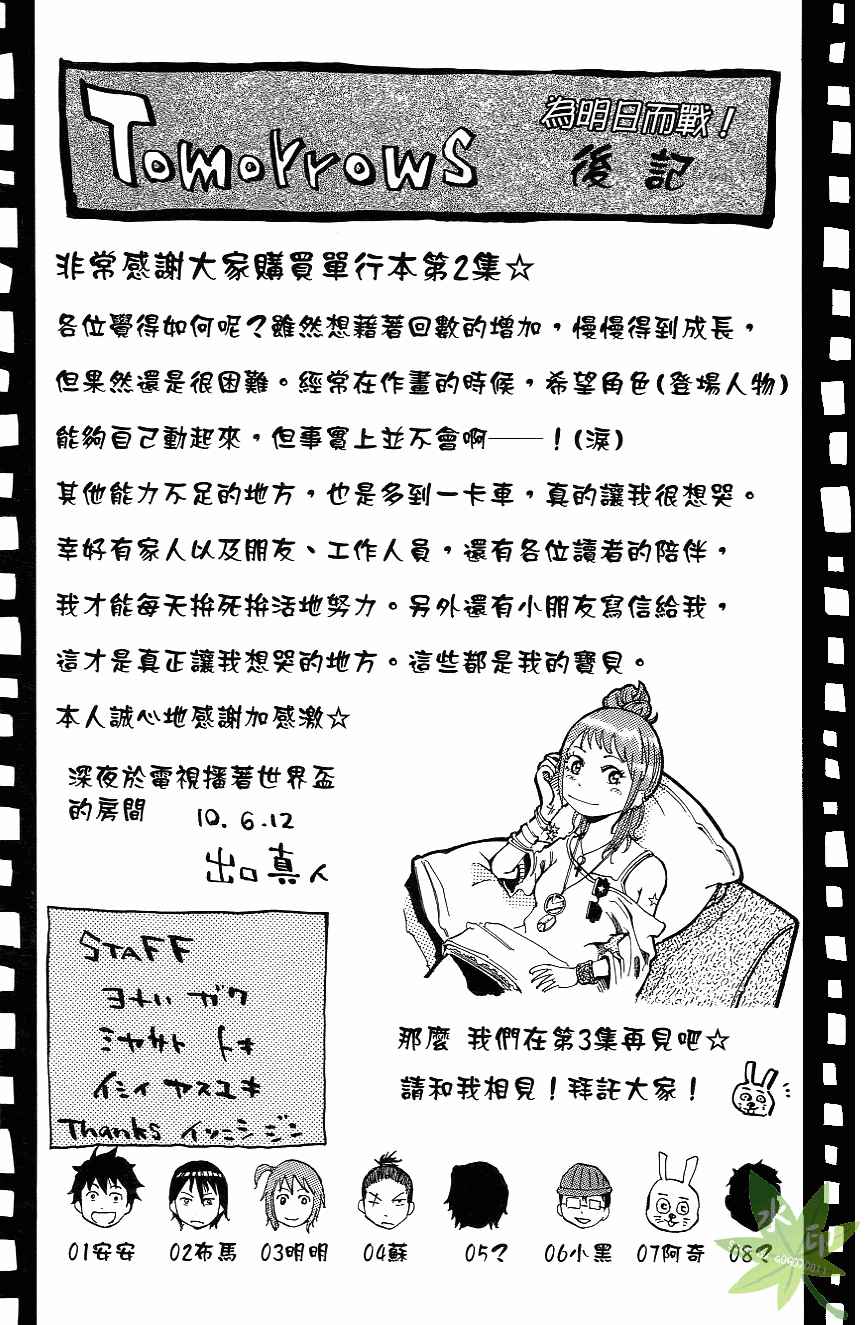 Tomorrows
為明日而戰！
後記
非常感謝大家購買單行本第2集☆
各位覺得如何呢？雖然想藉著回數的增加，慢慢得到成長，
但果然還是很困難。經常在作畫的時候，希望角色(登場人物)
能夠自己動起來，但事實上並不會啊——！(淚)
其他能力不足的地方，也是多到一卡車，真的讓我很想哭。
幸好有家人以及朋友、工作人員，還有各位讀者的陪伴，
我才能每天拚死拚活地努力。另外還有小朋友寫信給我，
這才是真正讓我想哭的地方。這些都是我的寶貝。
本人誠心地感謝加感激☆
深夜於電視播著世界盃
的房間 10.6.12
出口真人
STAFF
ヨナハ ガク
ミヤサト トキ
イシイ ヤスユキ
Thanks イソニシ ジン
那麼 我們在第3集再見吧☆
請和我相見！拜託大家！
01安安 02布馬 03明明 04蘇 05？ 06小黑 07阿奇 08？
水印